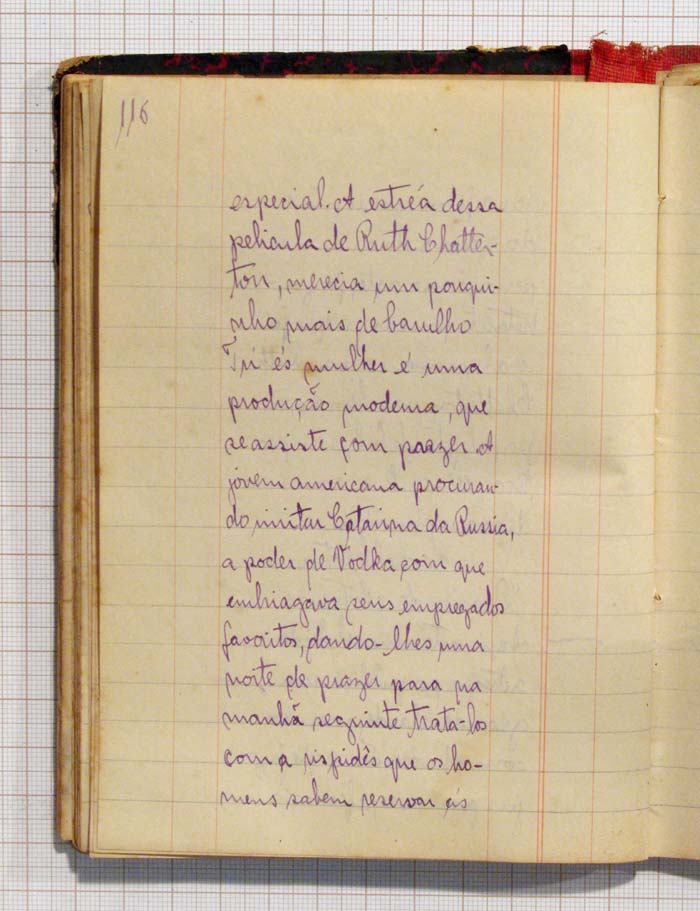 116
especial. A estréa dessa
pelicula de Ruth Chatter-
ton, merecia um pouqui-
nho mais de barulho
Tú és mulher é uma
produção moderna, que
se assiste com prazer. A
jovem americana procuran-
do imitar Catarina da Russia,
a poder de Vodka com que
embriagava seus empregados
favoritos, dando-lhes uma
noite de prazer para na
manhã seguinte trata-los
com a rispidês que os ho-
mens sabem reservar ás